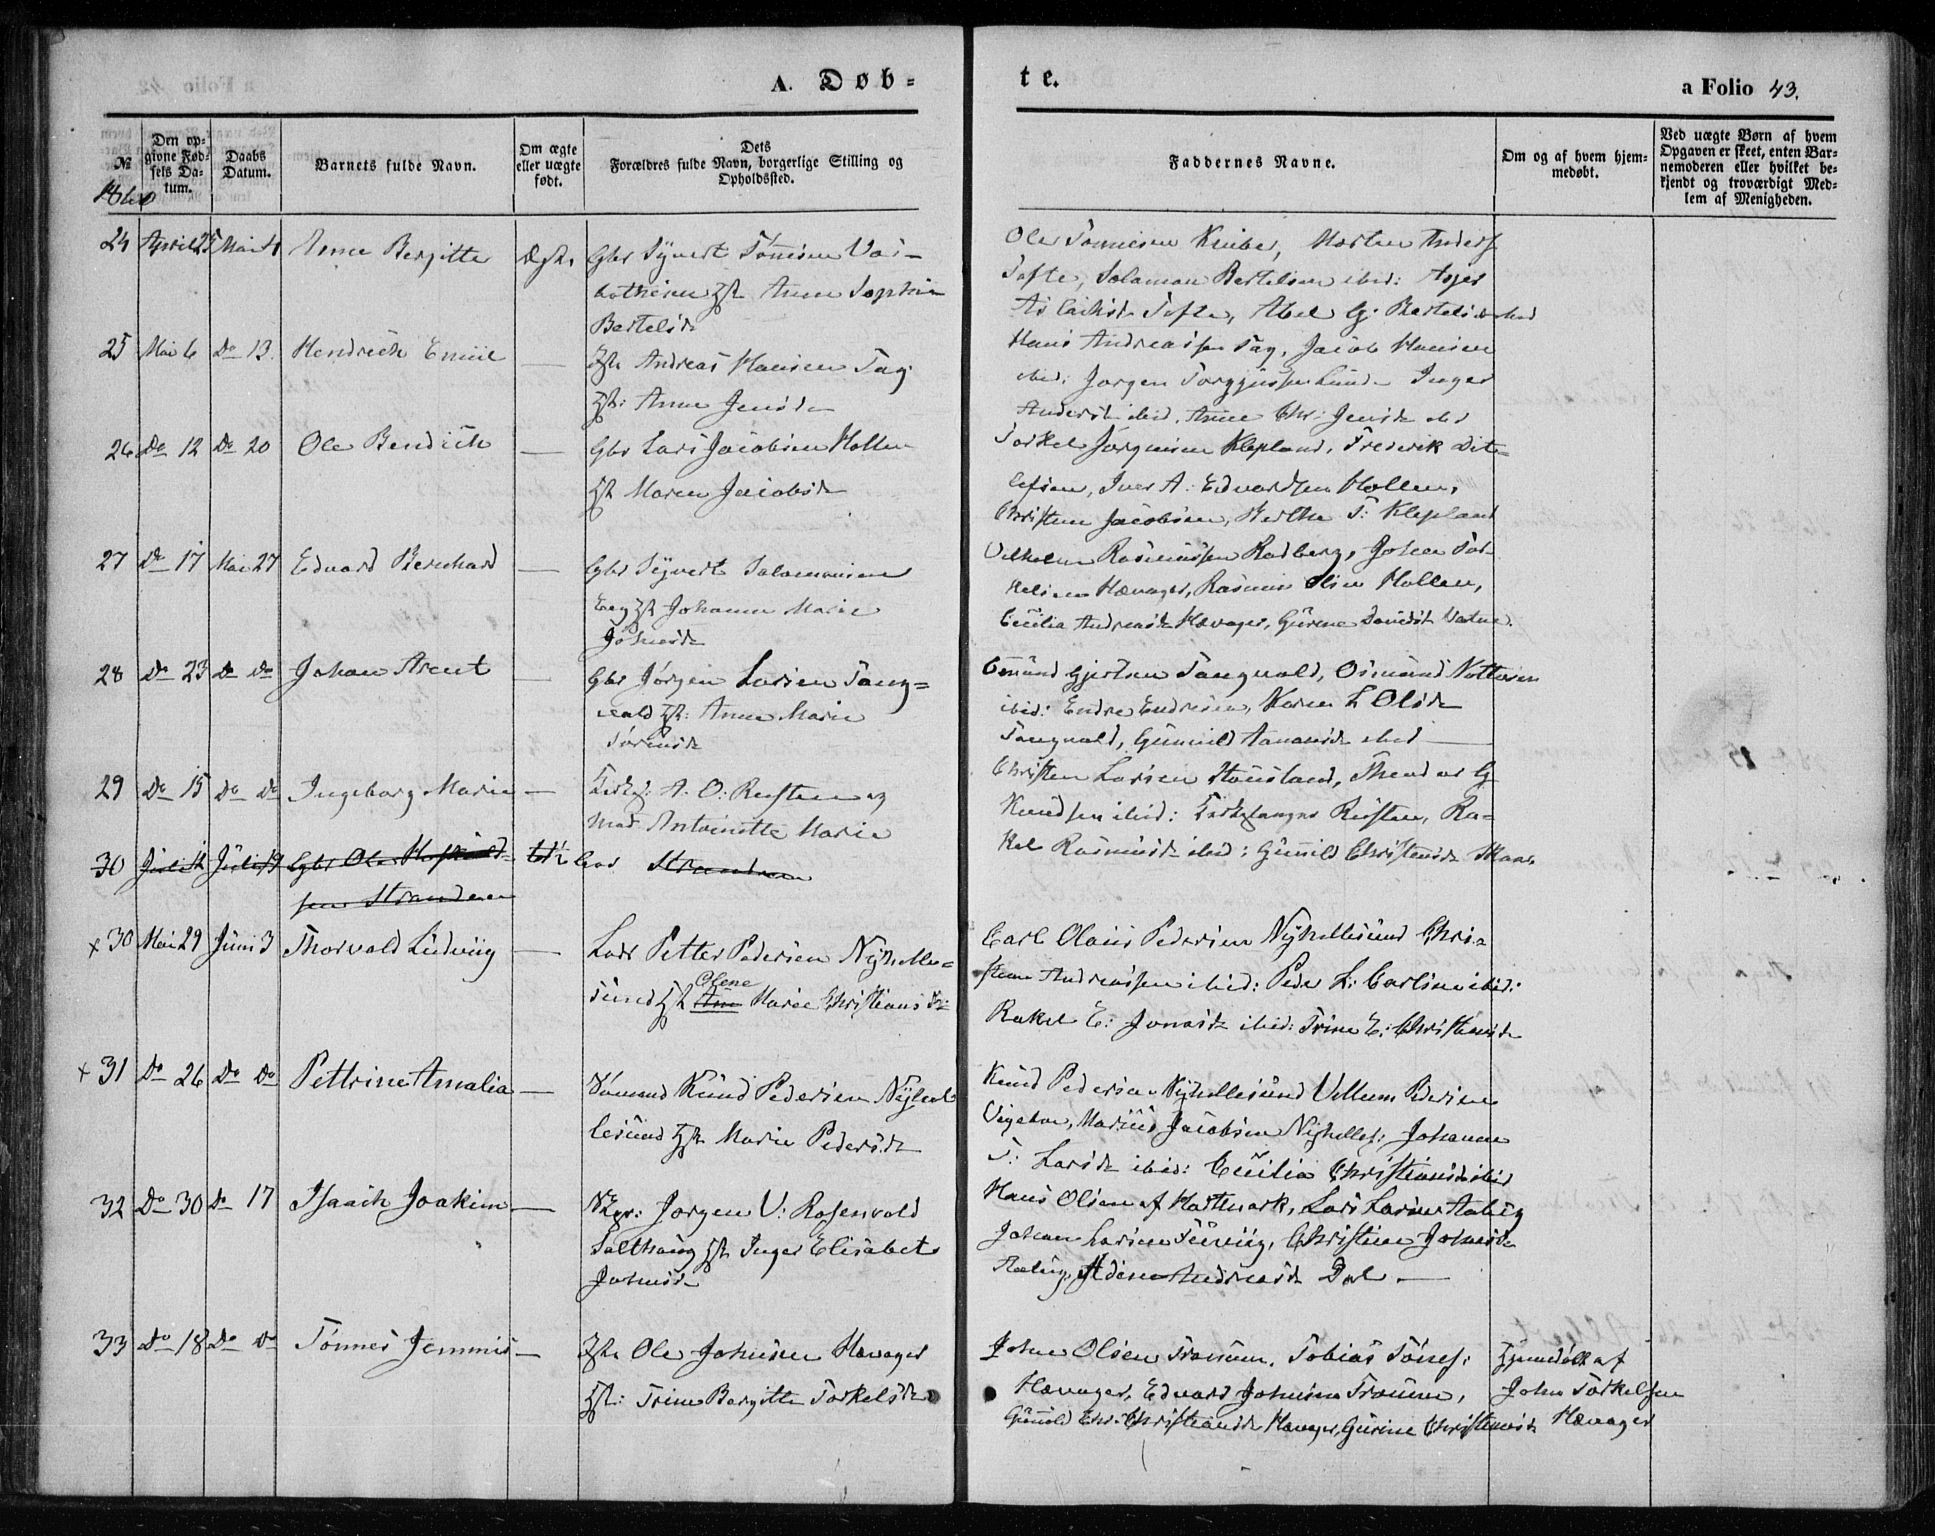 A. Døb=
te.
a Folio 43.
№
Den op-
givne Fød-
sels Da-
tum.
Daabs
Datum.
Barnets fulde Navn.
Om ægte
eller uægte
født.
Dets
Forældres fulde Navn, borgerlige Stilling og
Opholdssted.
Faddernes Navne.
Om og af hvem hjem-
medøbt.
Ved uægte Børn af hvem
Opgaven er skeet, enten Bar-
nemoderen eller hvilket be-
kjendt og troværdigt Med-
lem af Menigheden.
24 April 25 Mai 4 Anne Bergitte Ægte Gbr Syvert Tønnesen
Anne Sophie
Bertelsd
Ole Tønnesen Knibe, Morten Anders
Tofte, Salamon Bertelsen ibid: Asger
Tofte, Abel G. Bertelsd ibid
25 Mai 6 Do 13. Hendrich Emiil — Andreas Hansen Tag
Hst: Anne Jensd
Hans Andreassen Tag, Jacob Hansen
ibid: Jørgen Torgjussen Lunde Inger
Andersd ibid, Anne Chr: Jensd ibid
26 Do 12 Do 20 Ole Bendich — Gbr Lars Jacobsen Hollen
Hst Maren Jacobsd
Torkel Jørgensen Klepland, Frederik Dit-
lefsen, Iver A. Edvardsen Hollen,
Christen Jacobsen, Berthe T: Klepland
27 Do 17 Mai 27 Edvard Bernhard — Gbr Syvert Salamonsen
Eeg Hst Johanne Marie
Johnsd
Vilhelm Rasmussen Rodberg, John Tor-
kelsen Hævager, Rasmus Olsen Hollen,
Cecilia Andreasd Hævager, Gurine Davidsd Vatne.
28 Do 23 Do Do Johan Arent — Gbr Jørgen Larsen Tang=
vald Hst: Anne Marie
Tørresd
Omund Gjertsen Tangvald, Osmund Nottosen
ibid: Endre Endresen, Karen L Olsd
Tangvald, Gunnild Aanonsd ibid —
29 Do 15 Do Do Ingeborg Marie — Kirks: A. O. Reisten og
Mad Antoinette Marie
Christen Larsen Stousland, Theodor G
Knudsen ibid: Kirkesanger Reisten, Ra-
kel Rasmusd ibid: Gunild Christensd
30 Juli Juli 19 Gbr Ole
sen Stranden
Stranden
× 30 Mai 29 Juni 3 Thorvald Ludvig — Lods Petter Pedersen Nyhelle-
Olene
sund Hst Ane Marie Christiansd:
Carl Olaus Pedersen Nyhellesund Chri-
stian Andreassen ibid: Peder L: Carlsen ibid:
Rakel E: Jonasd ibid: Trine E: Christensd
× 31 Do 26 Do Do Pettrine Amalia — Sømand Knud Pedersen Nyhel
lesund Hst Marie Pedersd
Knud Pedersen Nyhellesund Vellum Pedersen
Vigeboe, Marius Jacobsen Nyhelles: Johanne
T: Larsd ibid: Cecilia Christiansd ibid
32 Do 30 Do 17 Isaach Joakim — Jørgen V: Rosenvold
Salthaug Hst Inger Elisabet
Johnsd
Hans Olsen af Hartmark, Lars Larsen
Johan Larsen Christine Johnsd
Adine Andreasd Dal —
33 Do 18 Do Do Tønnes Jemmis — Ole Johnsen Hævager
Hst: Trine Bergitte Torkelsd
John Olsen Tronum. Tobias Tønes:
Hævager, Edvard Johnsen Tronum,
Gunild Chr: Christiansd Hævager, Gurine Christensd
Hjemdøbt af
John Torkelsen
Hævager